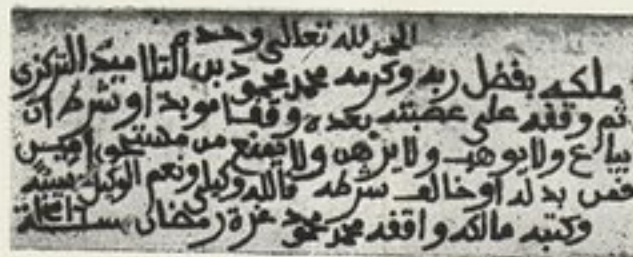 الحمد لله تعالى وحده
ملكه بفضل ربه وكرمه محمد محمود بن التلاميد التركزي
ثم وقفه على عصبته بعده وقفا موبدا وشرط ان
يباع ولا يوهب ولا يرهن ولا يمنع من مستحق
فمن بدله او خالف شرطه فالله وكيلي ونعم الوكيل
وكتبه مالكه واقفه محمد محمود غرة رمضان سنة ١٣١٦